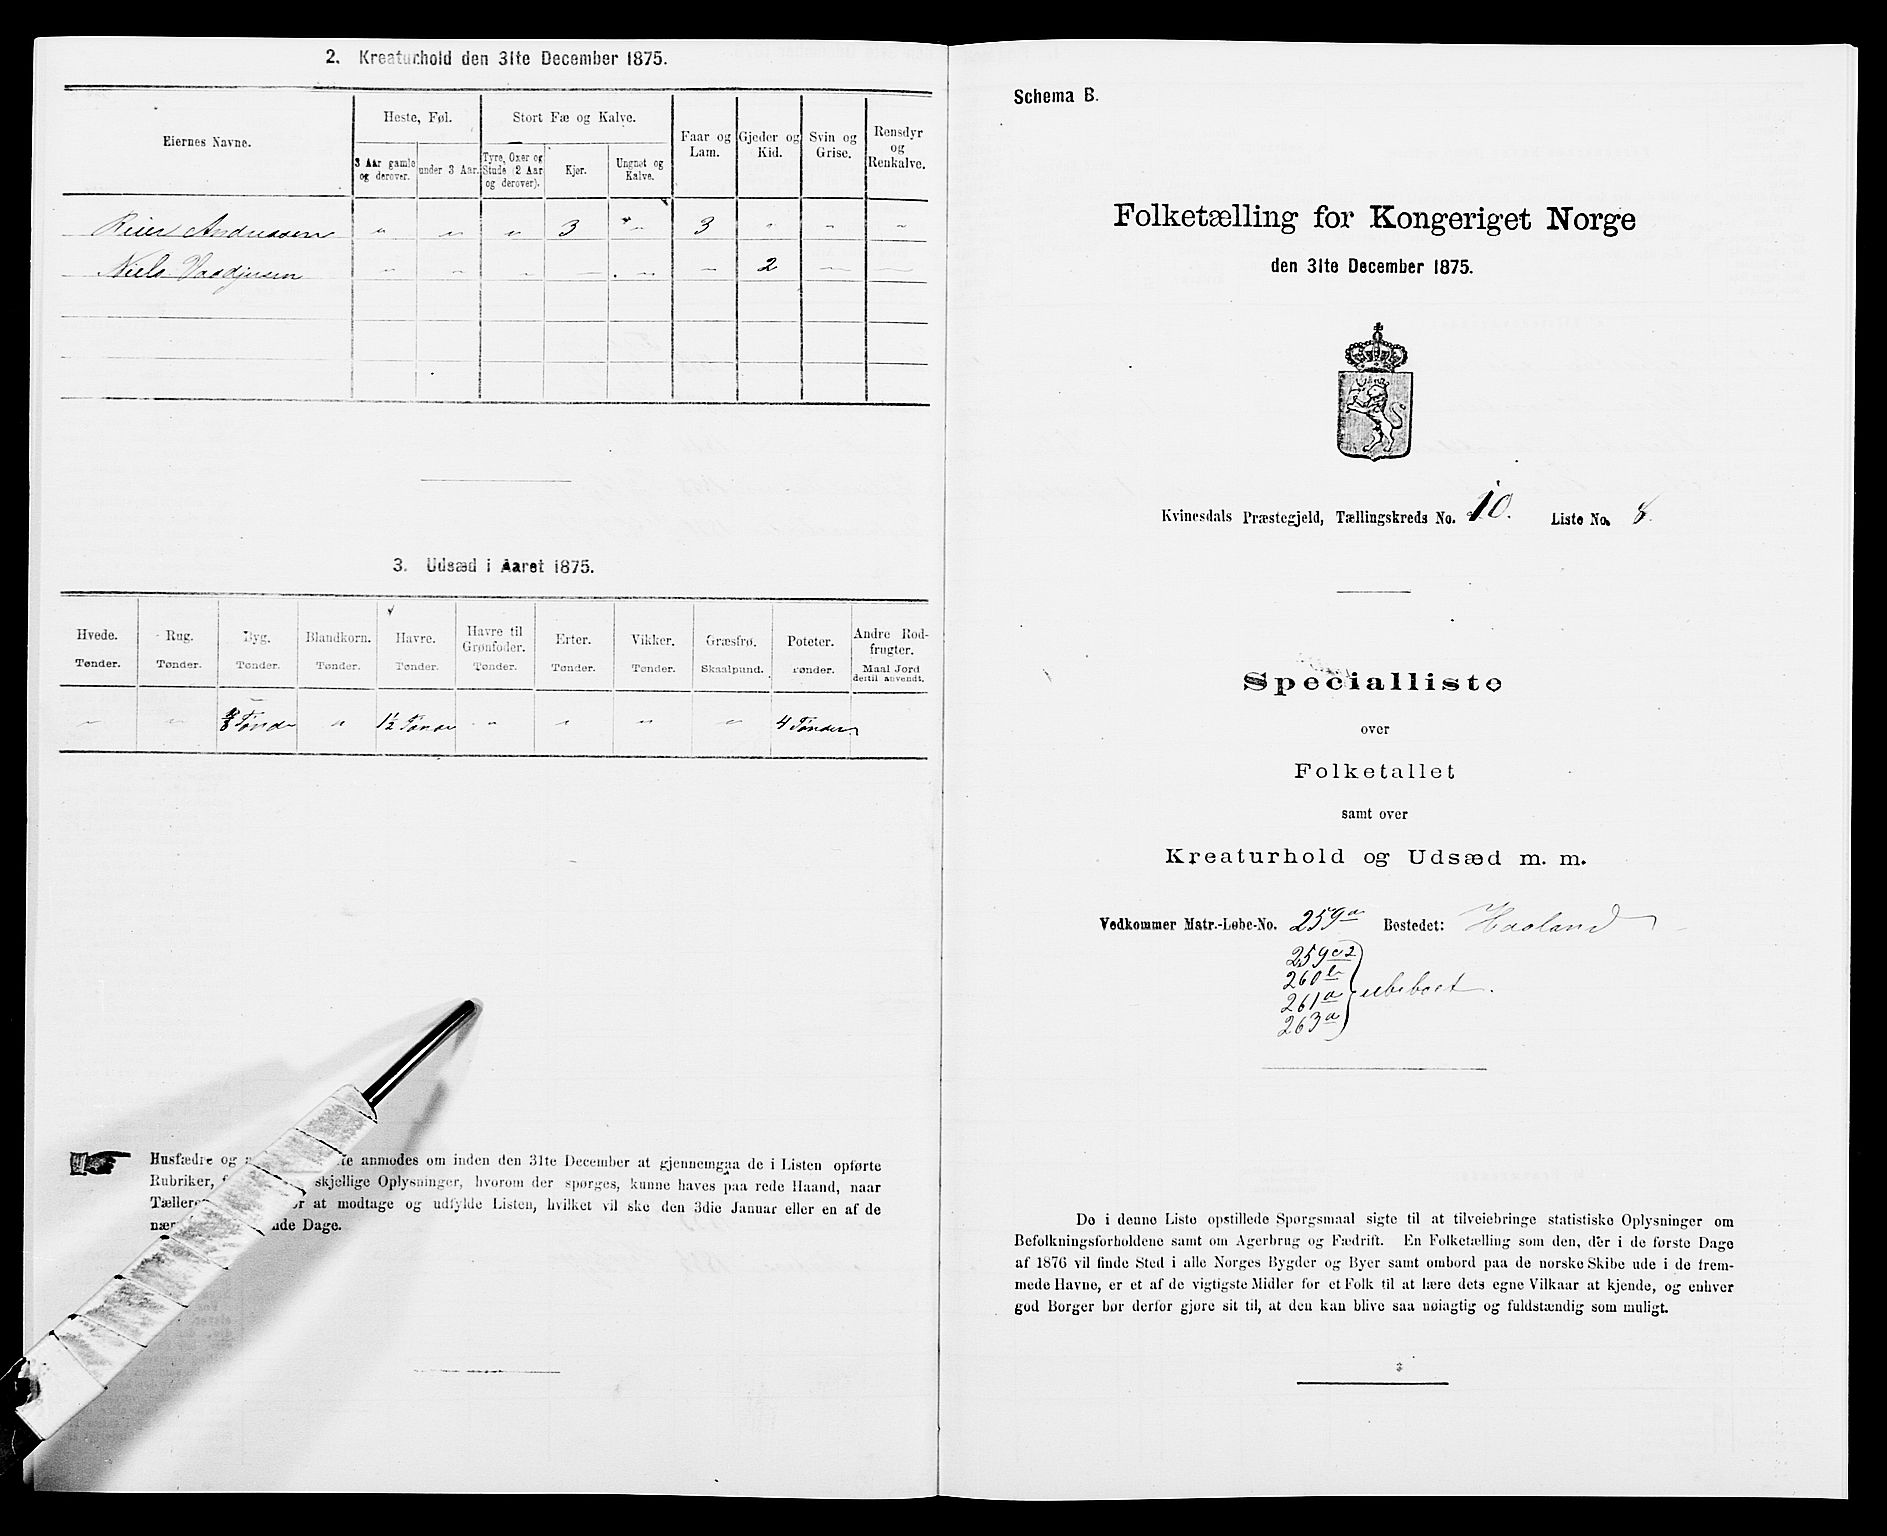 2. Kreaturhold den 31te December 1875.
Eiernes Navne.
Heste, Føl.
Stort Fæ og Kalve.
Faar og Lam.
Gjeder og Kid.
Svin og Grise.
Rensdyr og Renkalve.
3 Aar gamle og derover.
under 3 Aar.
Tyre, Oxer og Stude (2 Aar og derover).
Kjør.
Ungnøt og Kalve.
Reier Andreassen " " " 3 " 3 " " "
Niels 2
3. Udsæd i Aaret 1875.
Hvede. Rug. Byg. Blandkorn. Havre. Havre til Grønfoder. Erter. Vikker. Græsfrø. Poteter. Andre Rodfrugter.
Tønder. Tønder. Tønder. Tønder. Tønder. Tønder. Tønder. Tønder. Skaalpund. Tønder. Maal Jord dertil anvendt.
" " Tønde " 1½ Tønde " " " " 4 Tønder
Husfædre og anmodes om inden den 31te December at gjennemgaa de i Listen opførte
Rubriker, skjellige Oplysninger, hvorom der spørges, kunne haves paa rede Haand, naar
at modtage og udfylde Listen, hvilket vil ske den 3die Januar eller en af de
Dage.
Schema B.
Folketælling for Kongeriget Norge
den 31te December 1875.
Kvinesdals Præstegjeld, Tællingskreds No. 10. Liste No. 8.
Specialliste
over
Folketallet
samt over
Kreaturhold og Udsæd m. m.
Vedkommer Matr.-Løbe-No. 259a Bostedet: Haaland
259c2
260b
261a ubeboet.
263a
De i denne Liste opstillede Spørgsmaal sigte til at tilveiebringe statistiske Oplysninger om
Befolkningsforholdene samt om Agerbrug og Fædrift. En Folketælling som den, der i de første Dage
af 1876 vil finde Sted i alle Norges Bygder og Byer samt ombord paa de norske Skibe ude i de frem-
mede Havne, er et af de vigtigste Midler for et Folk til at lære dets egne Vilkaar at kjende, og enhver
god Borger bør derfor gjøre sit til, at den kan blive saa nøiagtig og fuldstændig som muligt.